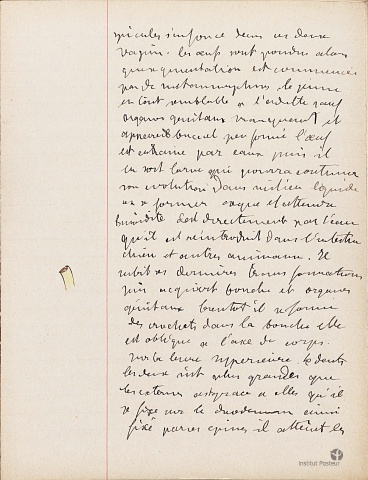 spicules s'enfonce dans ces deux
vagin. les œufs sont pondus alors
que segmentation est commencée
par de metamorphose le jeune
en tout semblable a l'adulte sauf
organes genitaux manquent et
appareil buccal peu formé l'œuf
est entrainé par eaux puis il
en sort larve qui pourra continuer
son evolution Dans milieu liquide
va se former coque et attendre
humidité c'est directement par l'eau
qu'il est reintroduit dans l'intestin
chien et autres animaux. Il
subit ses dernieres transformations
puis acquiert bouche et organes
génitaux bientot il se forme
des crochets dans la bouche elle
est oblique a l'axe du corps.
sur la levre superieure 4 dents
les deux int plus grandes que
les externes est grace a elles qu'il
se fixe sur le duodenum ainsi
fixé par ces epines il atteint les
Institut Pasteur